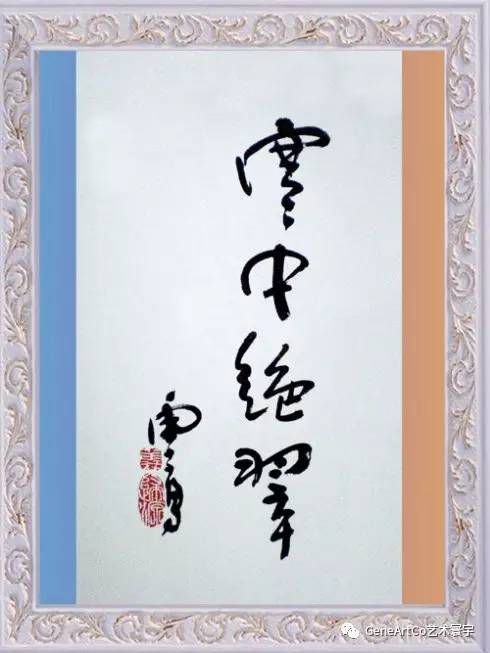 寒中絶翠
GeneArtCo艺术寰宇